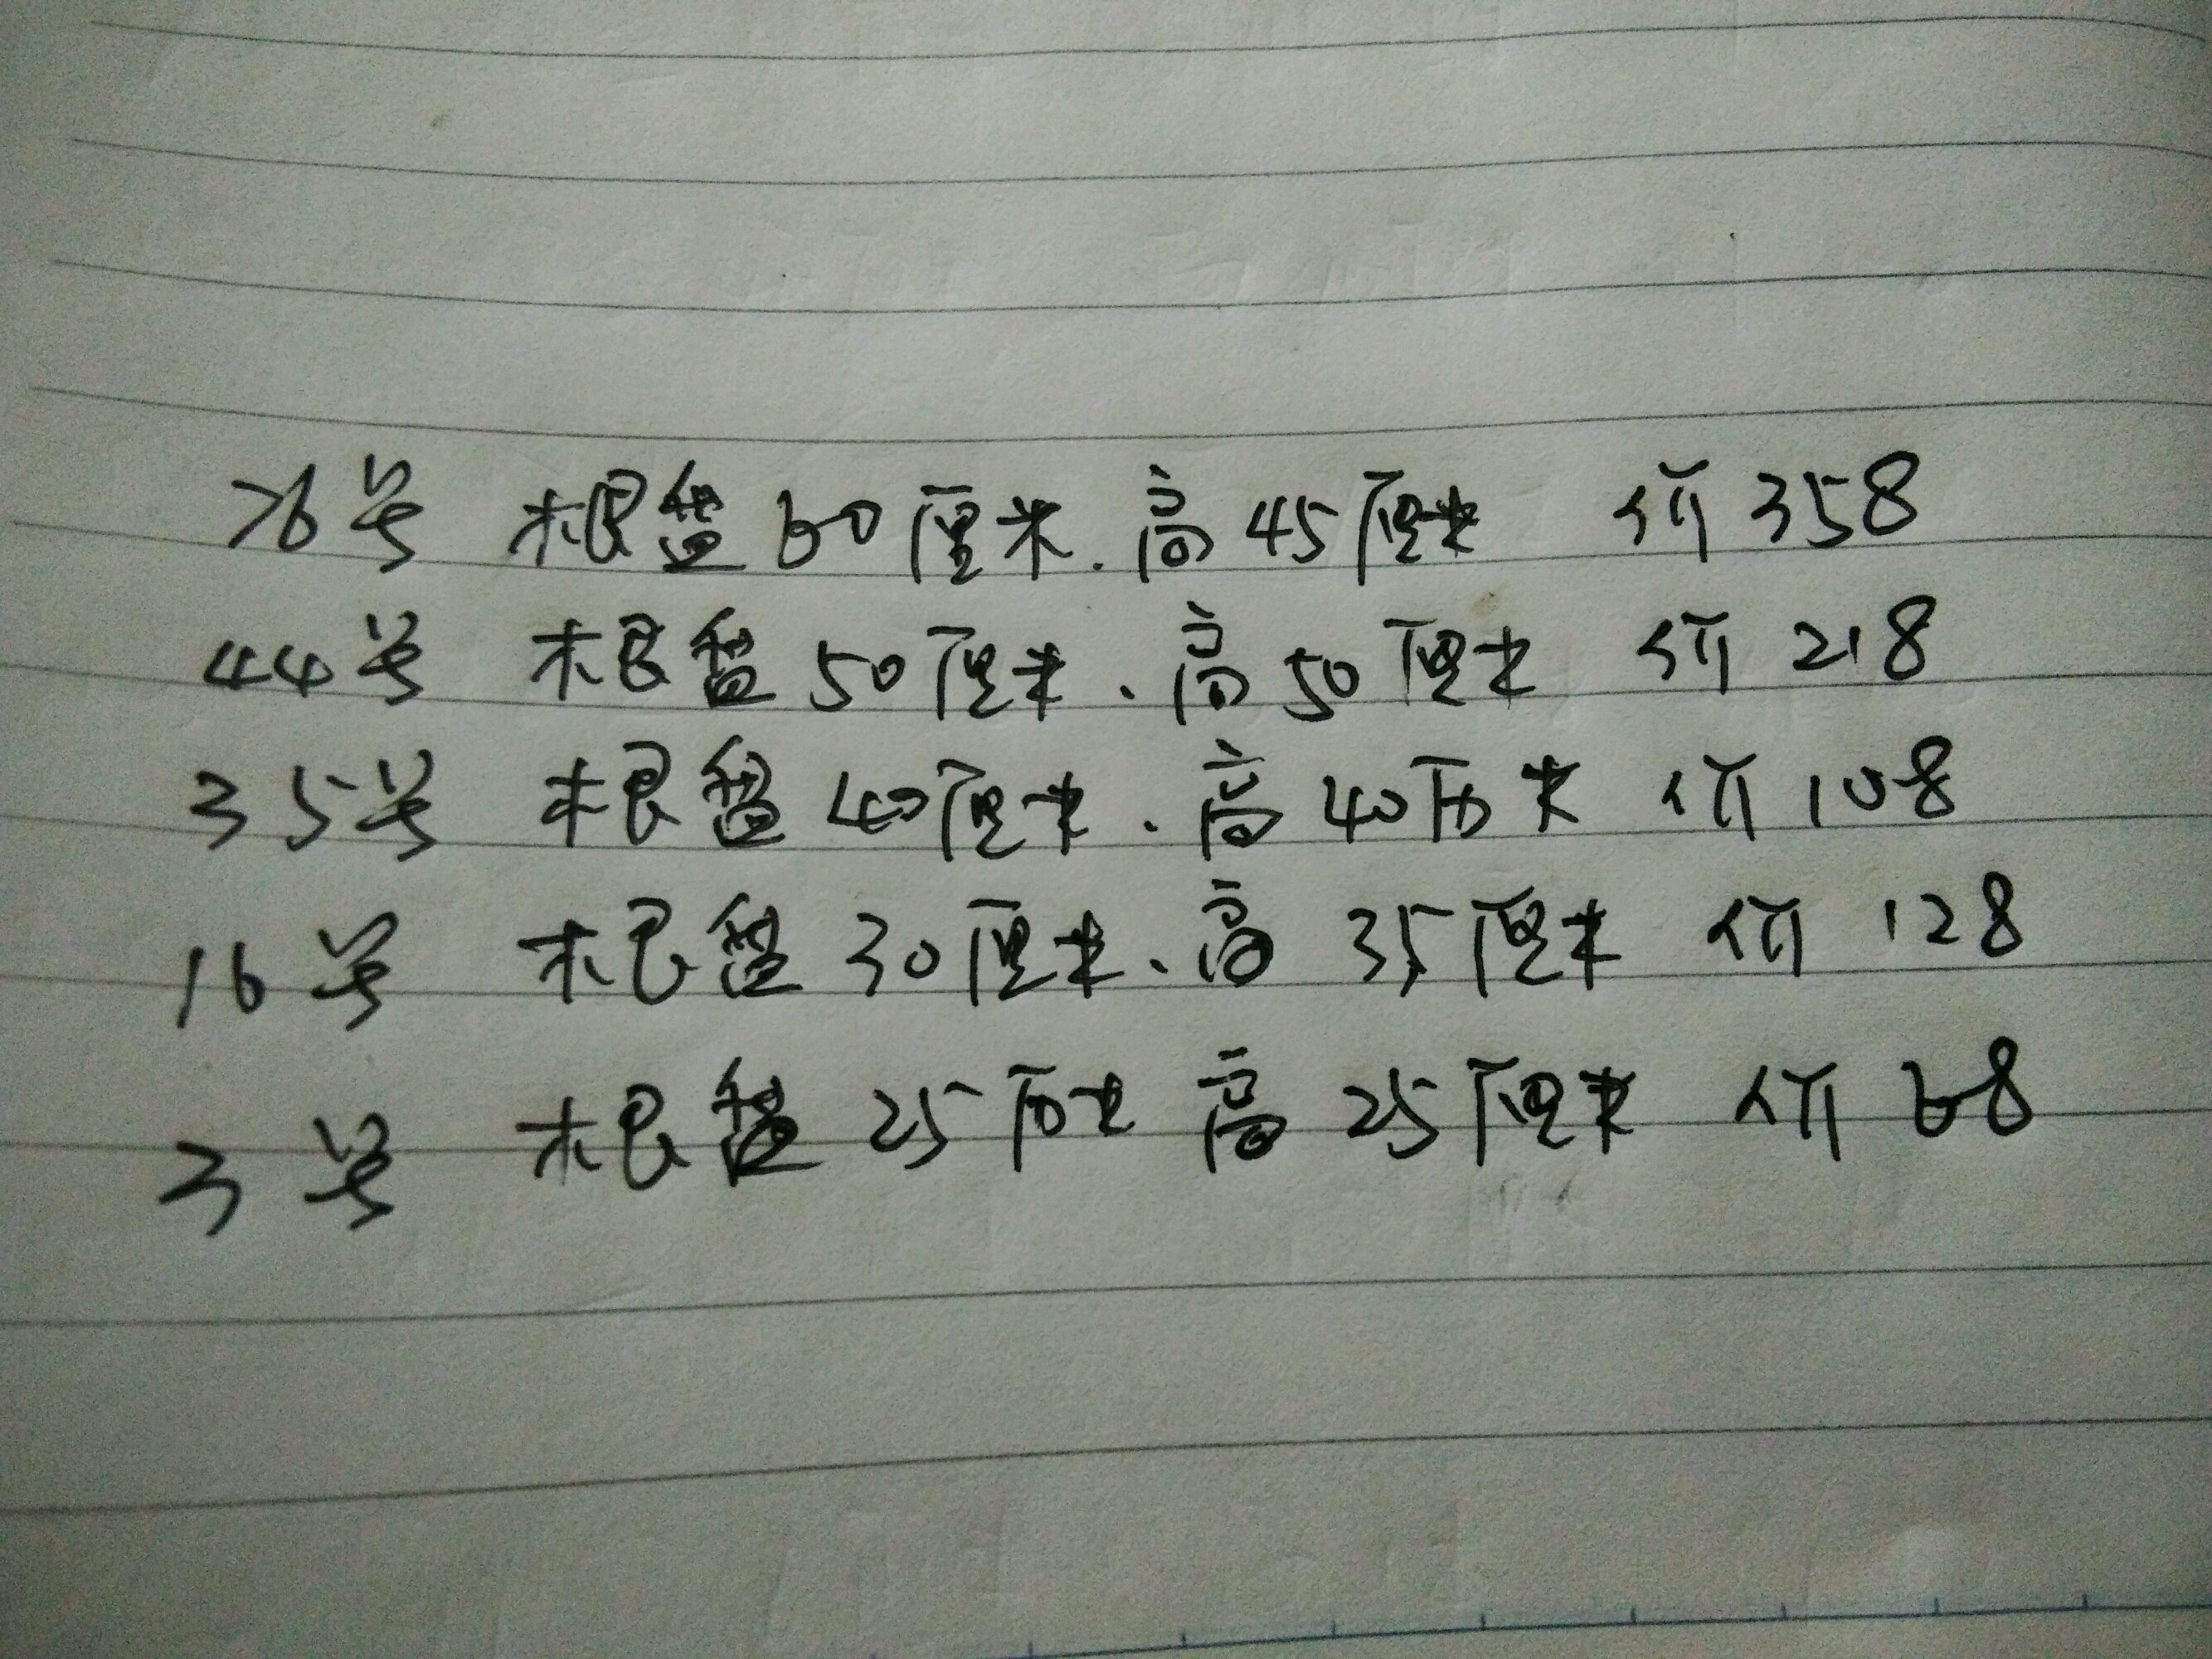 76号 根盘60厘米.高45厘米 价358
44号 根盘50厘米.高50厘米 价218
35号 根盘40厘米.高40厘米 价108
16号 根盘30厘米.高35厘米 价128
3号 根盘25厘米 高25厘米 价68